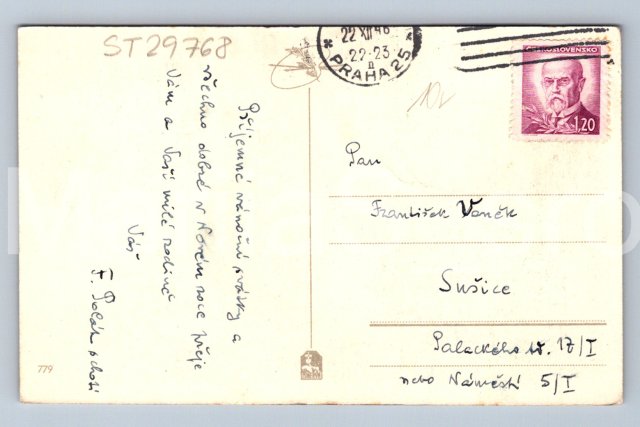 ST29768
22 XII 46
22-23
II
PRAHA 25
ČESKOSLOVENSKO
1,20
Příjemné vánoční svátky a
všechno dobré v Novém roce přeje
Vám a Vaší milé rodině
Váš
F. Polák s chotí
Pan
František Vaněk
Sušice
Palackého 17/I
nebo Náměstí 5/I
779